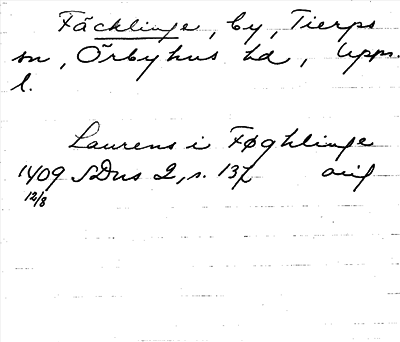 Fäcklinge, by, Tierps
sn, Örbyhus hd, Upps.
l.
Laurens i Føghlinge
1409 SDns 2, s. 137 orig
12/8